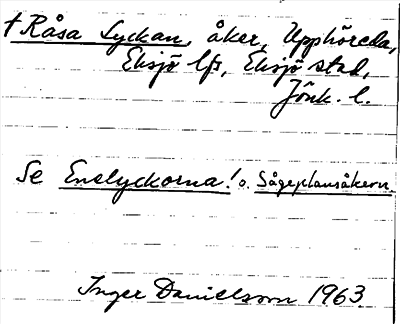 † Råsa Lyckan, åker, Upphöreda,
Eksjö lfs, Eksjö stad,
Jönk. l.
Se Enelyckorna! o. Sågeplansåkern.
Inger Danielsson 1963